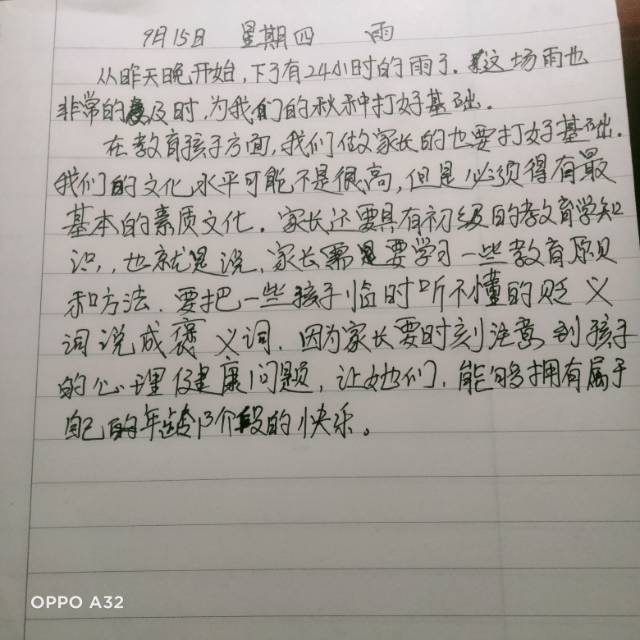 9月15日 星期四 雨
从昨天晚开始,下了有24小时的雨了.这场雨也
非常的及时,为我们的秋种打好基础.
在教育孩子方面,我们做家长的也要打好基础.
我们的文化水平可能不是很高,但是必须得有最
基本的素质文化.家长还要具有初级的教育学知
识,也就是说,家长需要学习一些教育原则
和方法.要把一些孩子临时听不懂的贬义
词说成褒义词.因为家长要时刻注意到孩子
的心理健康问题,让她们,能够拥有属于
自己的年龄阶段的快乐。
OPPO A32